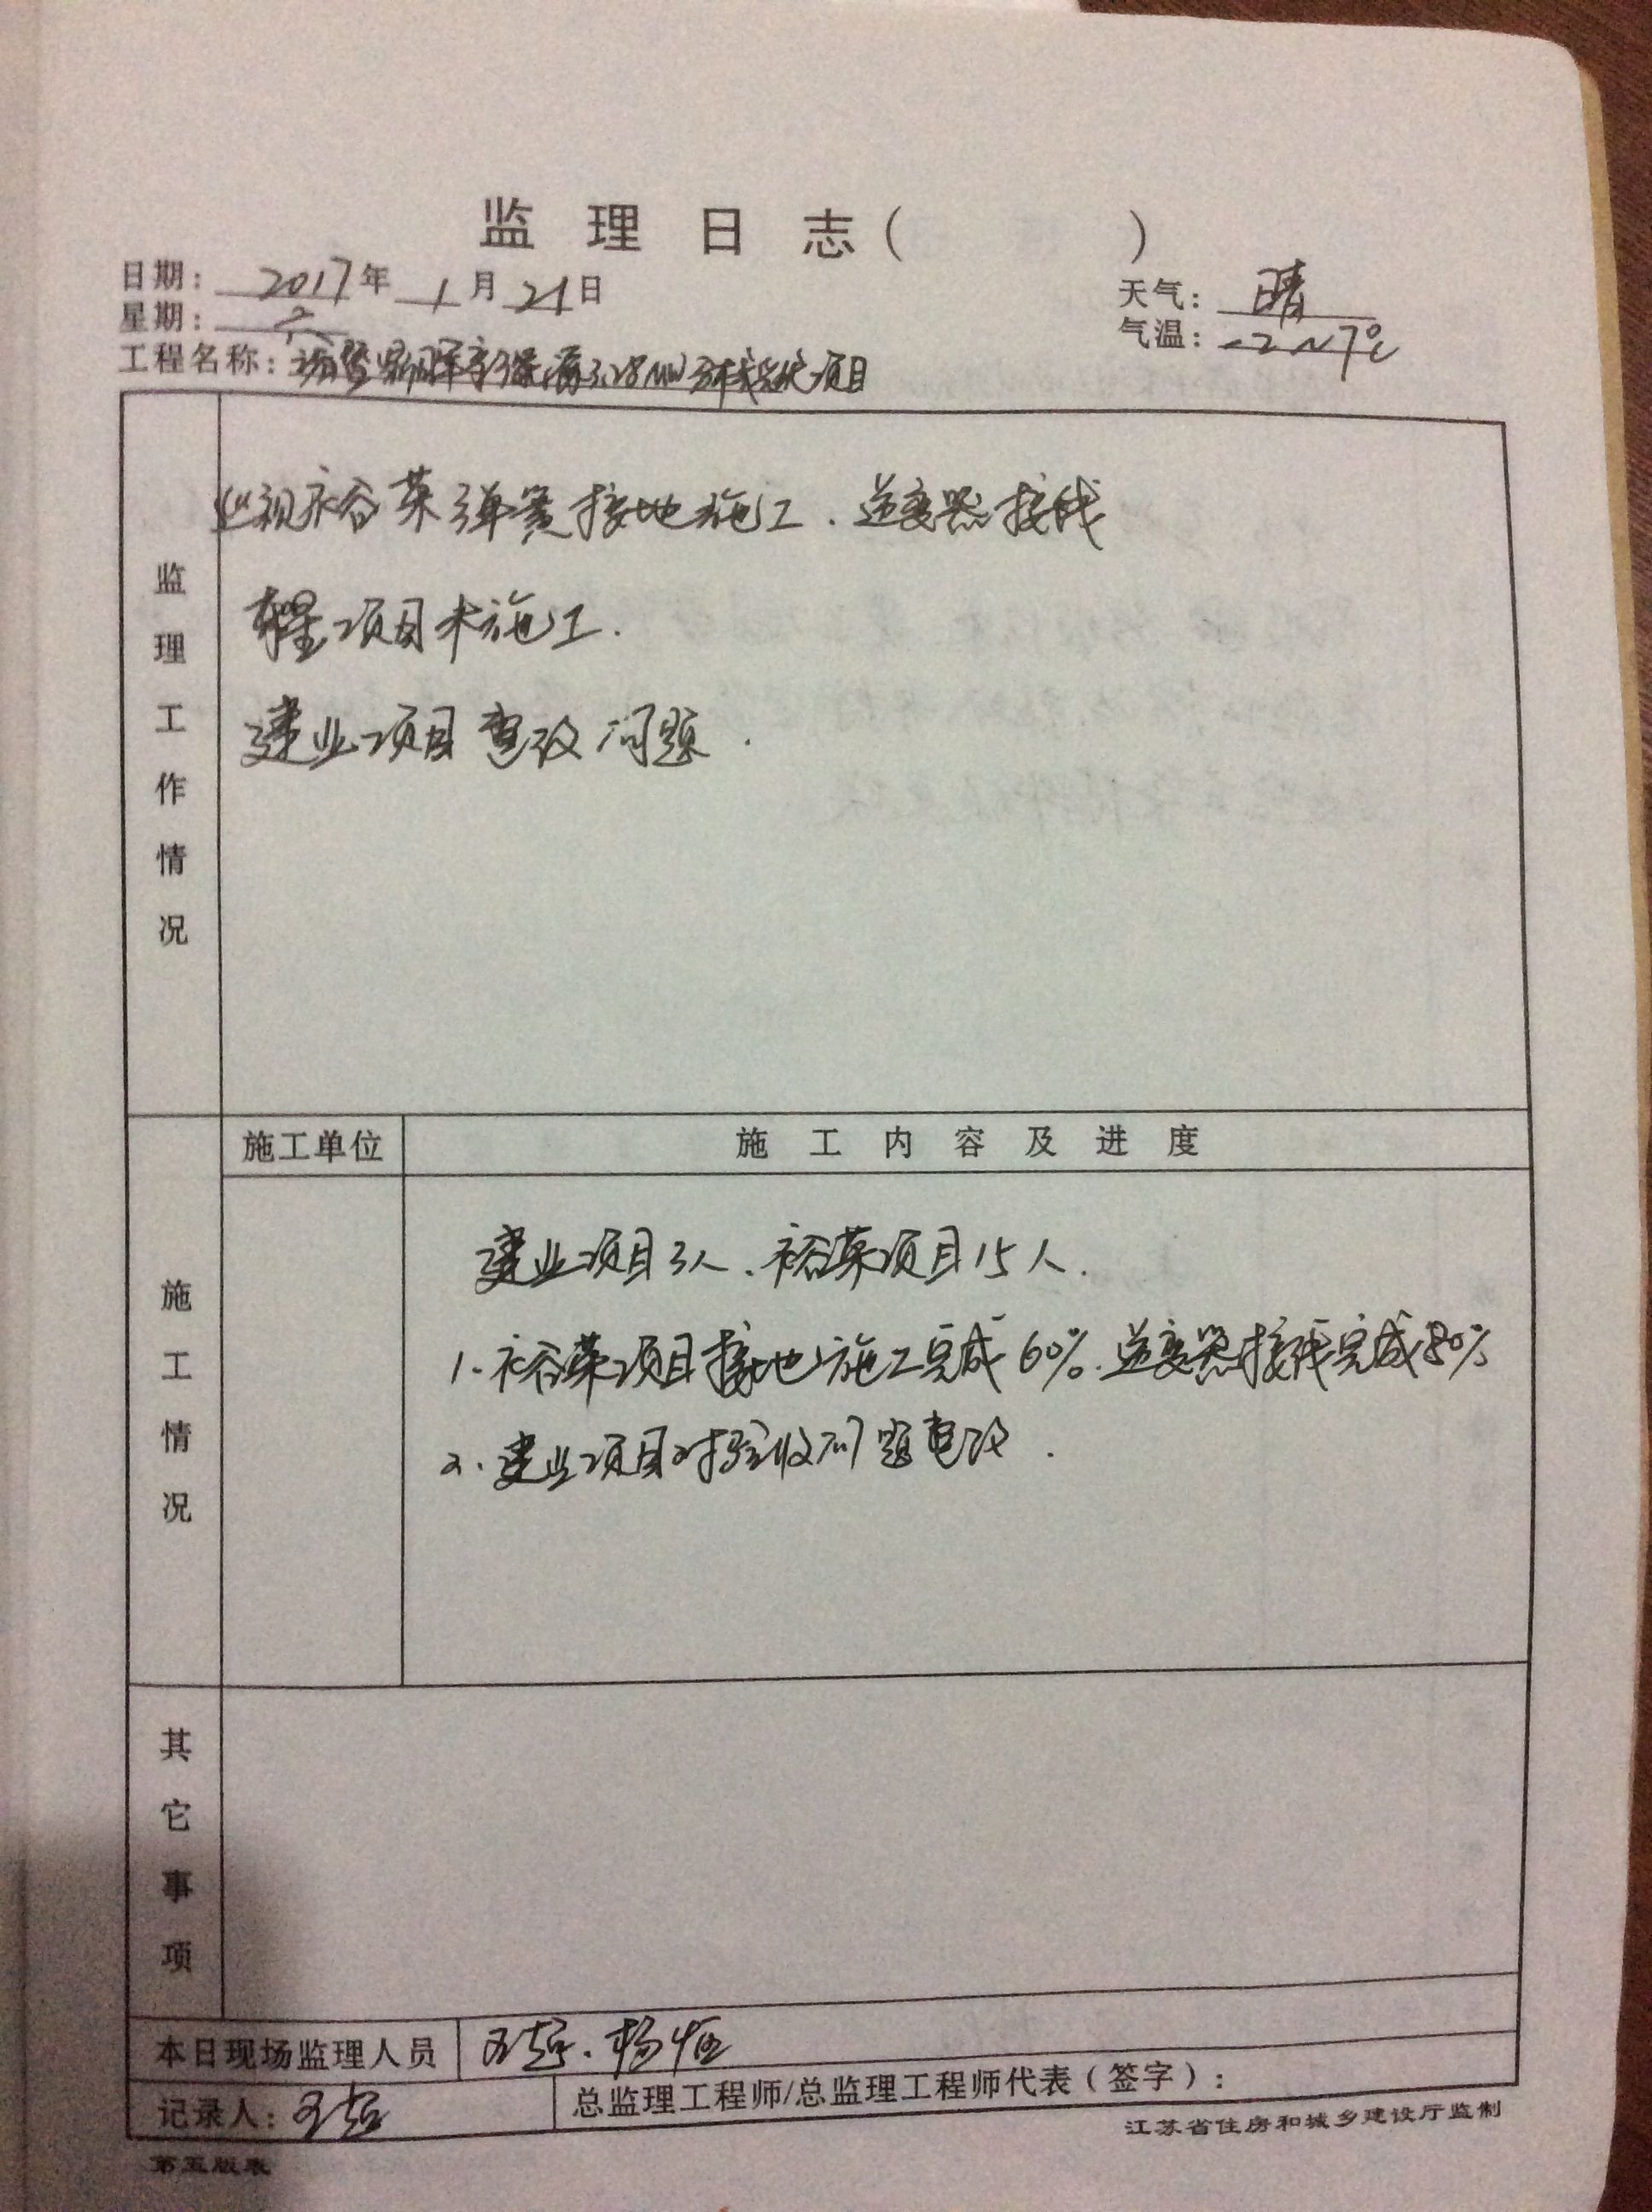 监理日志（ ）
日期：2017年1月21日
天气：晴
星期：六
气温：-2~7℃
工程名称：新能源3.28MW分布式光伏项目
监理工作情况
巡视裕荣弹簧接地施工、逆变器接线
项目未施工.
建业项目整改问题.
施工单位
施工内容及进度
施工情况
建业项目3人、裕荣项目15人.
1.裕荣项目接地施工完成60%、逆变器接线完成80%
2.建业项目对验收问题整改.
其它事项
本日现场监理人员 王超、杨恒
记录人：王超
总监理工程师/总监理工程师代表（签字）：
江苏省住房和城乡建设厅监制
第五版表